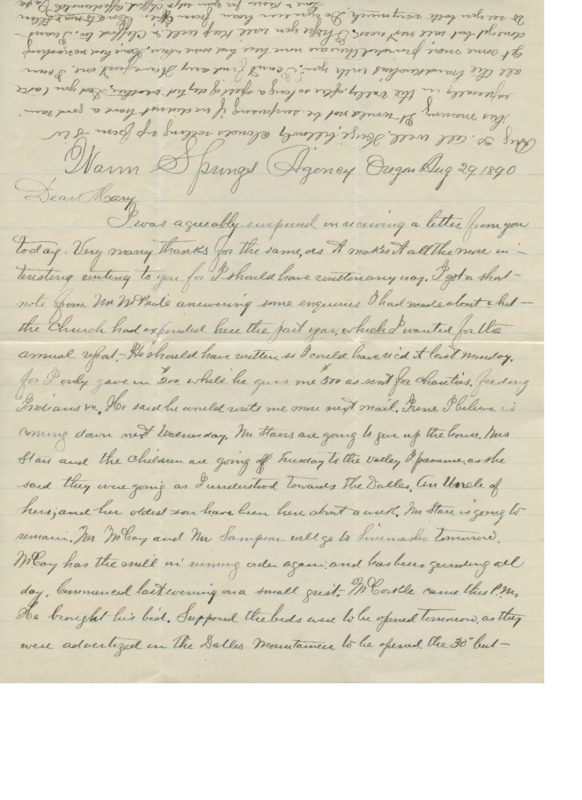 Warm Springs Agency Oregon Aug 29 1890
Dear Mary
I was agreeably surprised in receiving a letter from you
today. Very many thanks for the same, as it makes it all the more in-
teresting writing to you for I should have written any way. I got a short
note from Mr. answering some enquiries I had made about what
the Church had expended here the past year, which I wanted for the
annual report. He should have written so I could have rec'd it last Monday,
for I only gave in $200, while he gives me $300 as sent for charities, feeding
Indians &c. He said he would write me more next mail. Irene I believe is
coming down next Wednesday. Mr Stars are going to give up the house. Mrs
Stars and the children are going off Tuesday to the valley I presume, as she
said they were going as I understood towards The Dalles. An Uncle of
hers, and her oldest son have been here about a week. Mr Stars is going to
remain. Mr McCoy and Mr Sampson will go to Sinemasho tomorrow.
McCoy has the mill in running order again, and has been grinding all
day. Commenced last evening on a small grist. McCorkle came this P.M.
He brought his bid. Supposed the beds were to be opened tomorrow, as they
were advertized in the Dalles Mountaineer to be opened the 30" but-
Aug 30. All well. Huge, billowy clouds rolling up from S.W.
this morning. It would not be surprising if we did not have a good rain
especially in the valley, after so long a spell of dry weather. Did you take
all the handkerchiefs with you. I can't find any. Have just one. I can
get some more